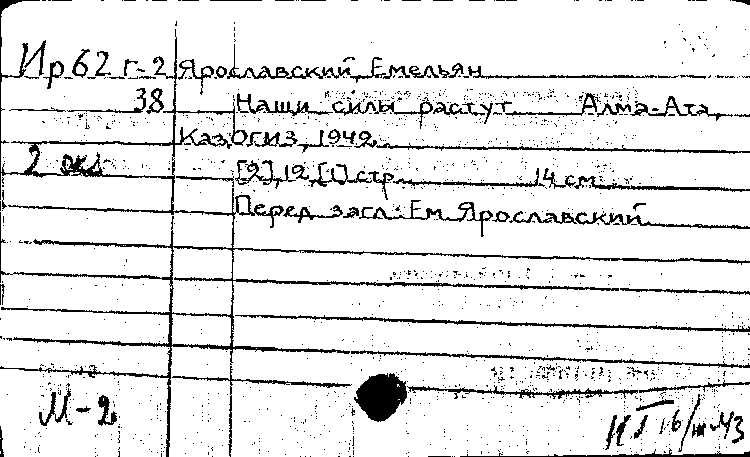 Ир62 г-2 Ярославский, Емельян
38 Наши силы растут. Алма-Ата,
КазОГИЗ, 1942.
2 экз [2], 12, [1] стр. 14 см.
Перед загл.: Ем. Ярославский
М-2